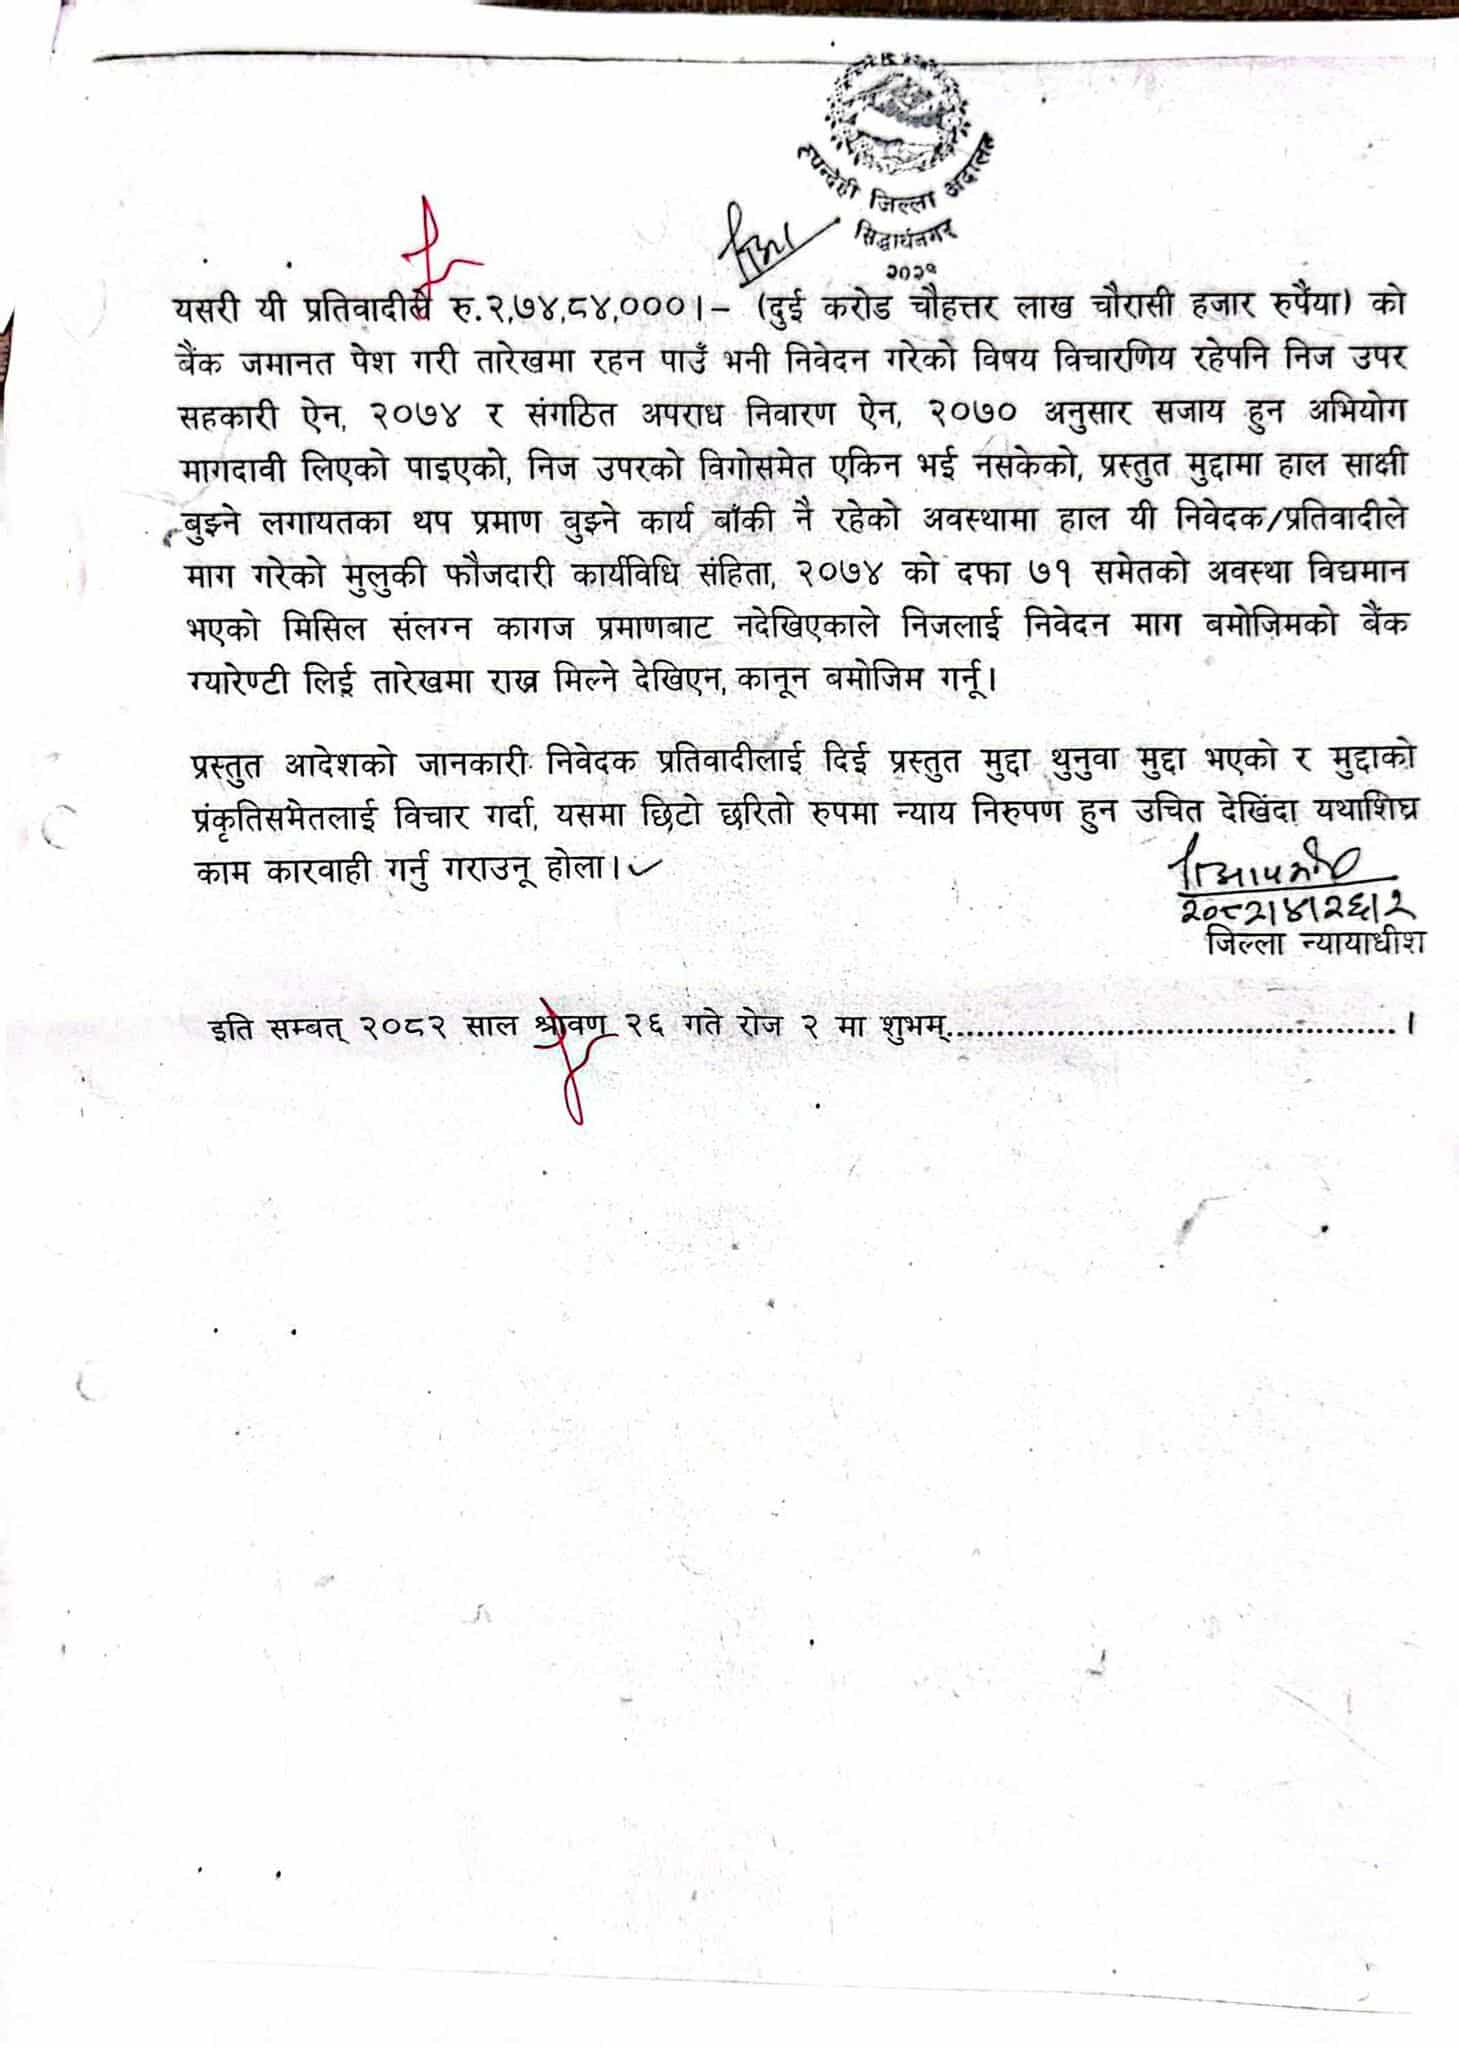 रुपन्देही जिल्ला अदालत
सिद्धार्थनगर
२०२१
यसरी यी प्रतिवादीले रु.२,७४,८४,०००।– (दुई करोड चौहत्तर लाख चौरासी हजार रुपैया) को
बैंक जमानत पेश गरी तारेखमा रहन पाउँ भनी निवेदन गरेको विषय विचारणिय रहेपनि निज उपर
सहकारी ऐन, २०७४ र संगठित अपराध निवारण ऐन, २०७० अनुसार सजाय हुन अभियोग
मागदावी लिएको पाइएको, निज उपरको विगोसमेत एकिन भई नसकेको, प्रस्तुत मुद्दामा हाल साक्षी
बुझ्ने लगायतका थप प्रमाण बुझ्ने कार्य बाँकी नै रहेको अवस्थामा हाल यी निवेदक/प्रतिवादीले
माग गरेको मुलुकी फौजदारी कार्यविधि संहिता, २०७४ को दफा ७१ समेतको अवस्था विद्यमान
भएको मिसिल संलग्न कागज प्रमाणबाट नदेखिएकाले निजलाई निवेदन माग बमोजिमको बैंक
ग्यारेण्टी लिई तारेखमा राख्न मिल्ने देखिएन, कानून बमोजिम गर्नू।
प्रस्तुत आदेशको जानकारी निवेदक प्रतिवादीलाई दिई प्रस्तुत मुद्दा थुनुवा मुद्दा भएको र मुद्दाको
प्रंकृतिसमेतलाई विचार गर्दा, यसमा छिटो छरितो रुपमा न्याय निरुपण हुन उचित देखिंदा यथाशिघ्र
काम कारवाही गर्नु गराउनू होला।
२०८२।४।२६।२
जिल्ला न्यायाधीश
इति सम्बत् २०८२ साल श्रावण २६ गते रोज २ मा शुभम्............................................।